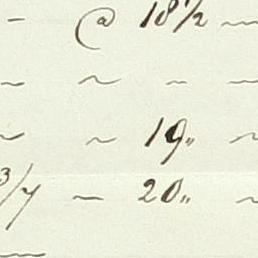 – @ 18 1/2 ~
~ ~ – ~
~ ~ 19„ ~
3/7 – 20„ ~